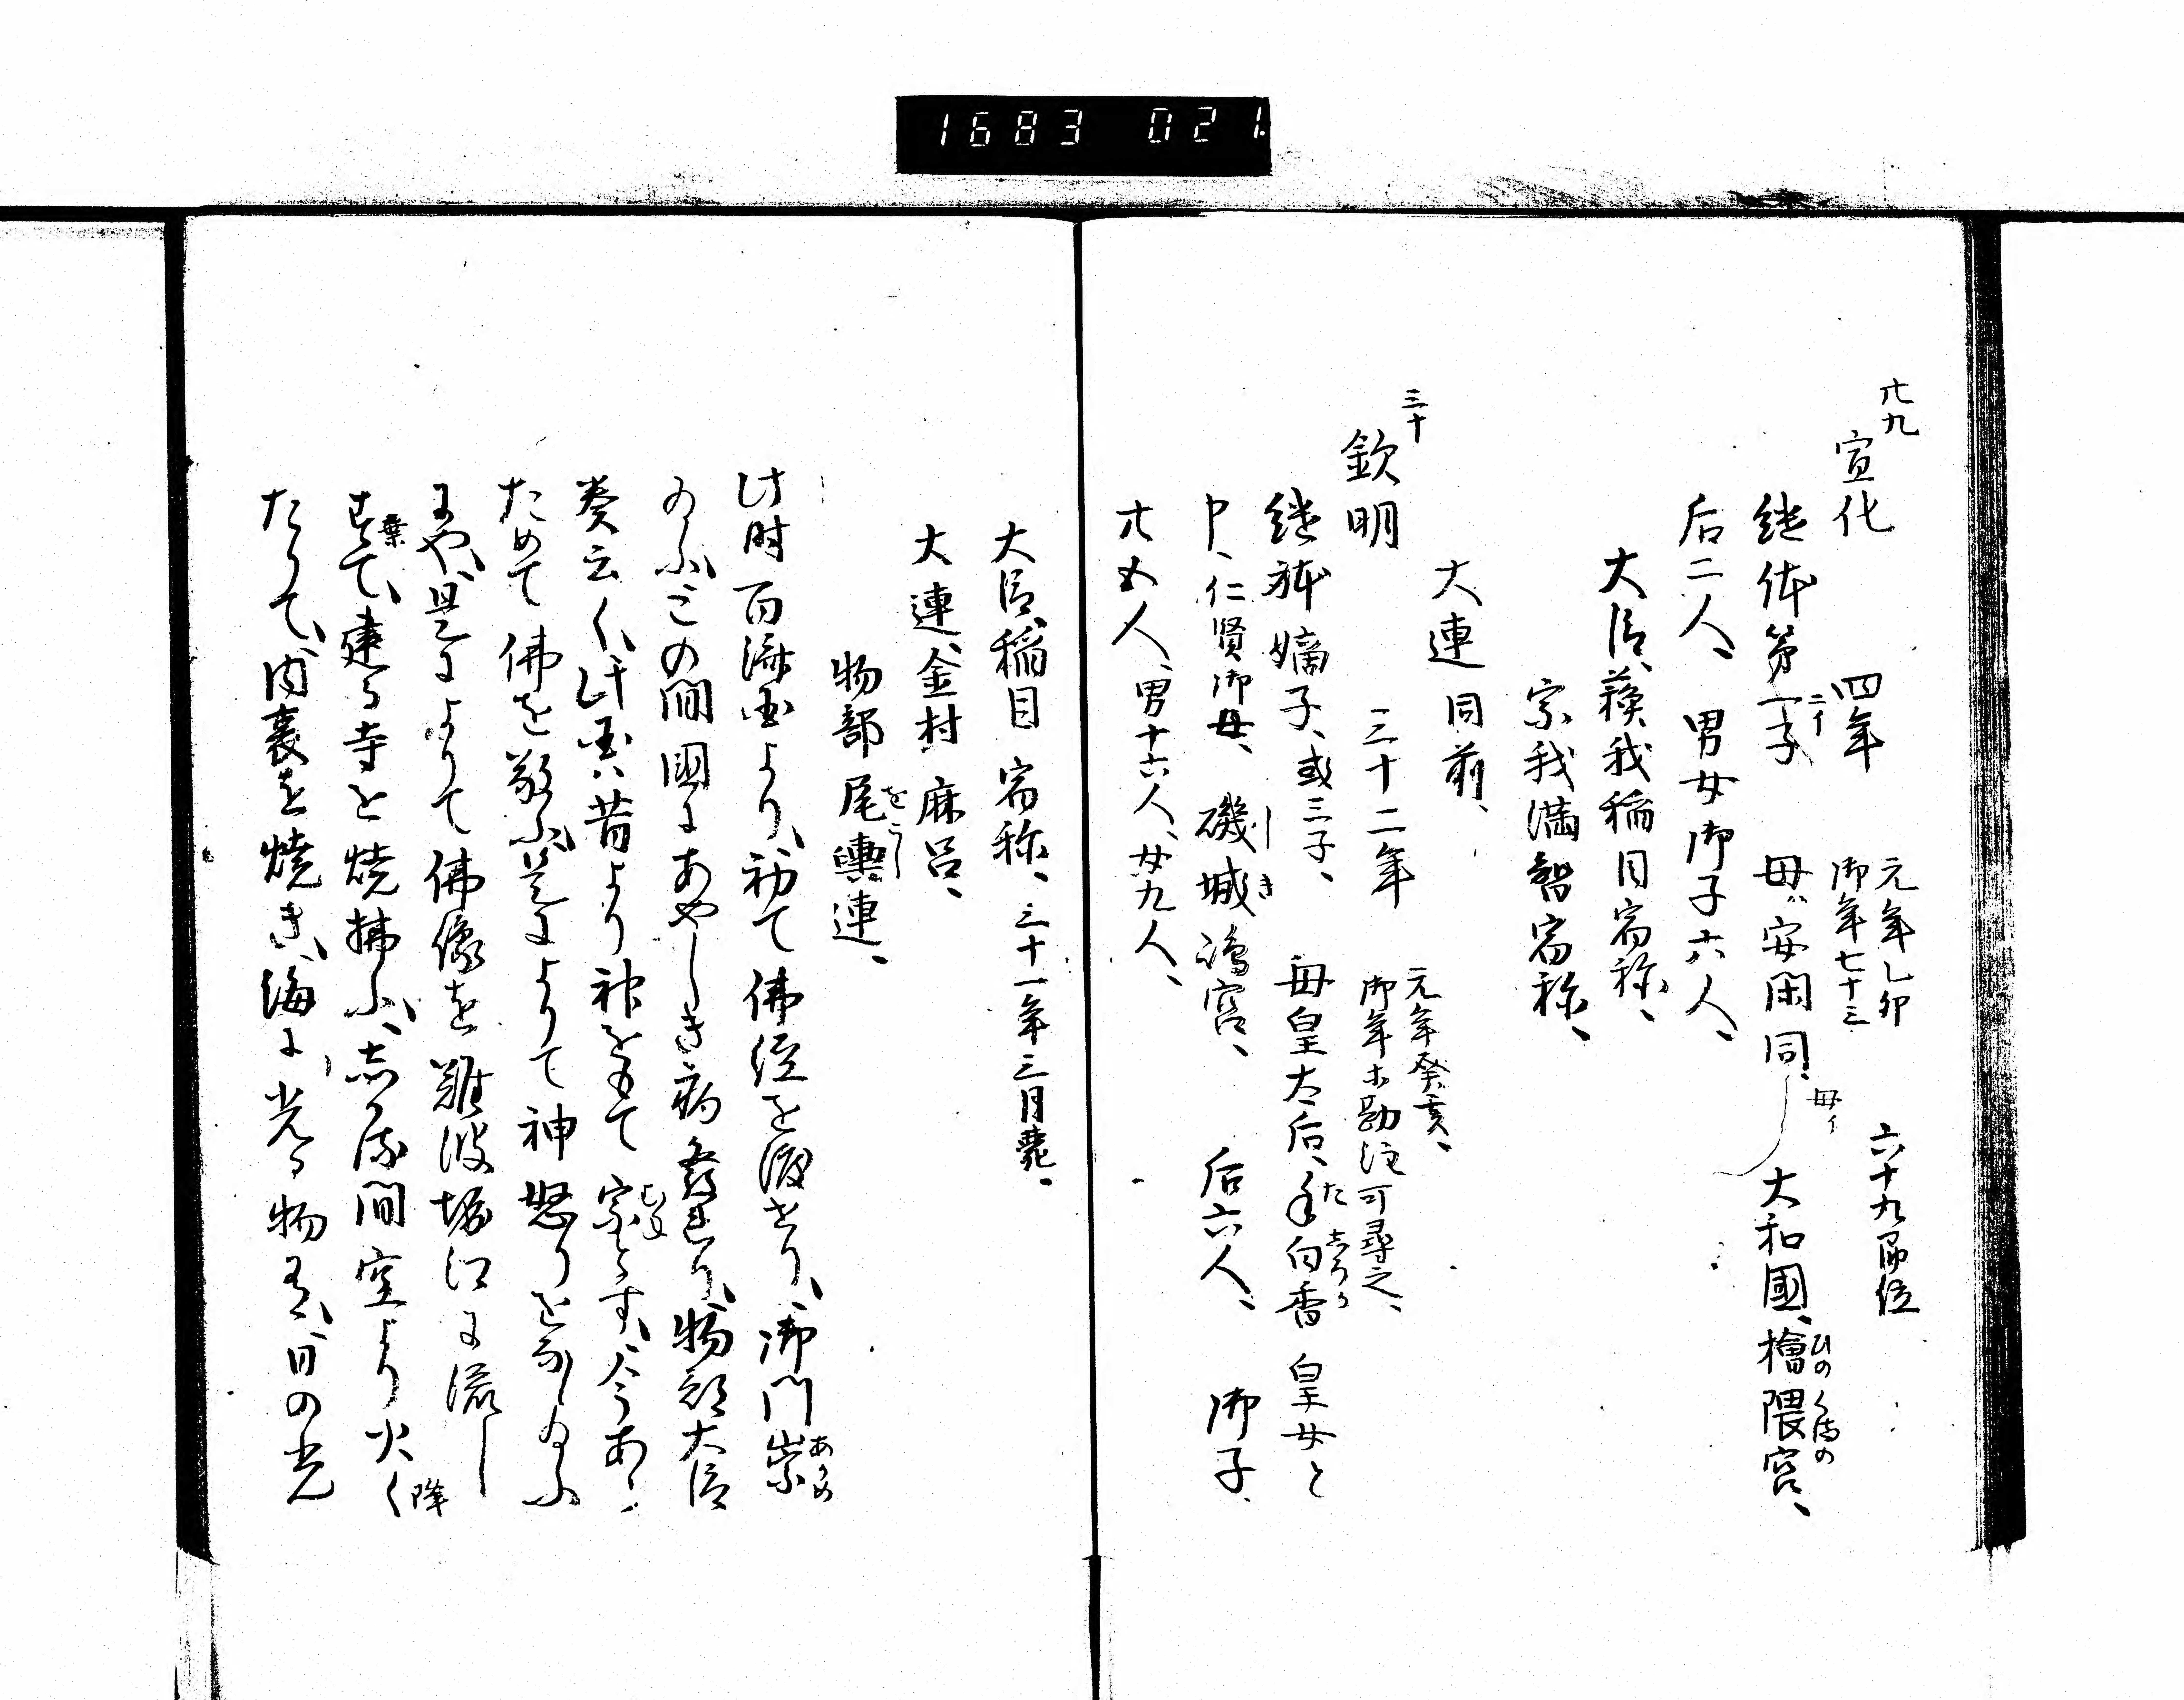 1683 021
廿九
宣化 四年 元年乙卯 六十九即位
御年七十三
継体第一子 二イ 母ハ安閑同シ 母イ 大和國、檜隈宮、 ひのくまの
后二人、男女御子六人、
大臣、蘓我稲目宿祢、
宗我満智宿祢、
大連 同前、
三十
欽明 三十二年 元年癸亥、
御年未勘注可尋之、
継体嫡子、或三子、 母皇太后、手白香皇女と たしろか
申、仁賢御母、磯城嶋宮、 しき 后六人、御子
廿五人、男十六人、女九人、
大臣、稲目宿祢、三十一年三月薨、
大連、金村麻呂、
物部尾輿連、 をこし
此時百済国より、初て佛経を渡せり、御門崇 あかめ
給ふ、この間國にあやしき病發れり、物部大臣
奏云く、此国ハ昔より神をもて宗とす、今あ むね
ためて佛を敬ふ、是によりて神怒りをなし給ふ
にや、是によりて佛像を難波堀江に流し
すて、建る寺を焼拂ふ、しかる間空より火く 棄 降
たりて、内裏を焼き、海に光る物有、日の光